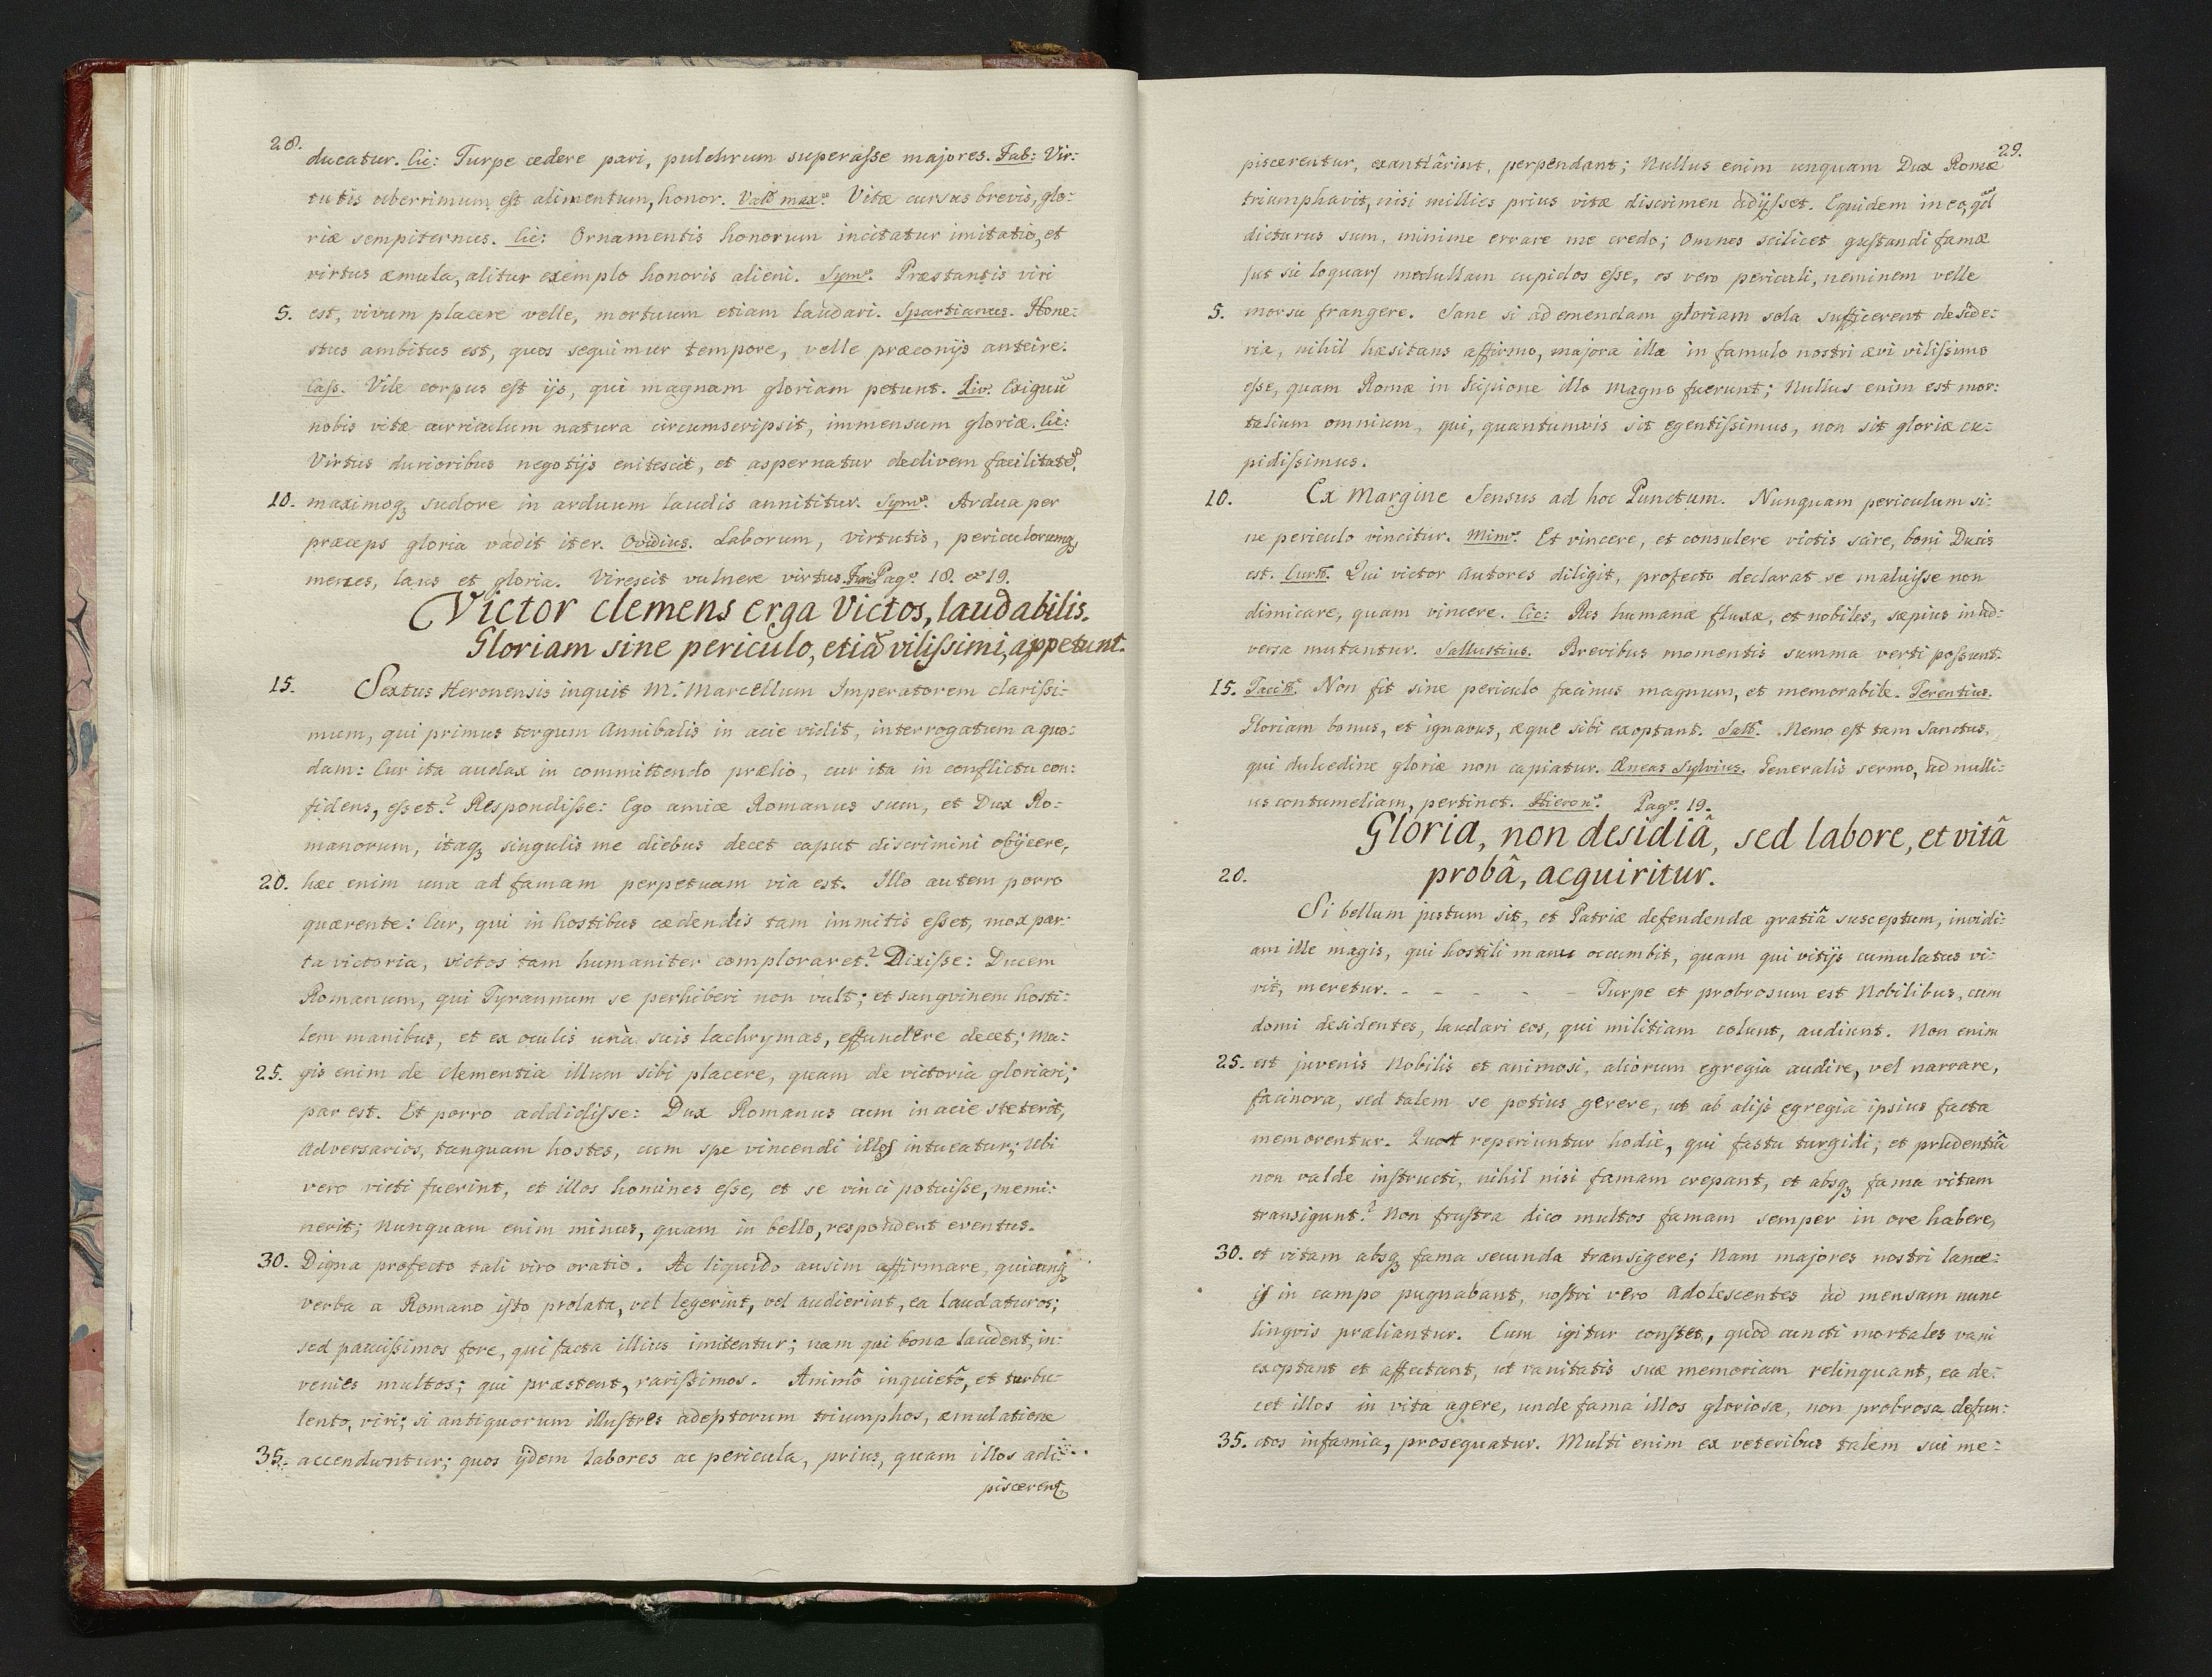 28.
ducatur. Cic: Turpe cedere pari, pulchrum superasse majores. Fab: Vir:
tutis uberrimum est alimentum, honor. Vald max⁹. Vitæ cursus brevis, glo:
riæ sempiternus. Cic: Ornamentis honorum incitatur imitatio, et
virtus æmula, alitur exemplo honoris alieni. Sym⁹. Præstantis viri
5. est, vivum placere velle, mortuum etiam laudari. Spartianus. Hone:
stus ambitus est, quos sequimur tempore, velle præconijs anteire.
Cass. Vile corpus est ijs, qui magnam gloriam petunt. Liv. Exiguũ
nobis vitæ curriculum natura circumscripsit, immensum gloriæ. Cic:
Virtus durioribus negotijs enitescit, et aspernatur declivem facilitatẽ,
10. maximoq₃ sudore in arduum laudis annititur. Sym⁹. Ardua per
præceps gloria vadit iter. Ovidius. Laborum, virtutis, periculorumq₃
merces, laus et gloria. Virescit vulnere virtus. Furi Pag⁹. 18. et 19.
Victor clemens erga Victos, laudabilis.
Gloriam sine periculo, etiã vilissimi, appetunt.
15. Sextus Heronensis inquit M. Marcellum Imperatorem clarissi:
mum, qui primus tergum Annibalis in acie vidit, interrogatum a quo:
dam: Cur ita audax in committendo prælio, cur ita in conflictu con:
fidens, esset? Respondisse: Ego amice Romanus sum, et Dux Ro:
manorum, itaq₃ singulis me diebus decet caput discrimini obijcere,
20. hæc enim una ad famam perpetuam via est. Illo autem porro
quærente: Cur, qui in hostibus cædendis tam immitis esset, mox par:
ta victoria, victos tam humaniter comploraret? Dixisse: Ducem
Romanum, qui Tyrannum se perhiberi non vult; et sangvinem hosti:
lem manibus, et ex oculis unà suis lachrymas, effundere decet; ma:
25. gis enim de clementia illum sibi placere, quam de victoria gloriari,
par est. Et porro addidisse: Dux Romanus cum in acie steterit,
Adversarios, tanquam hostes, cum spe vincendi illos intueatur; Ubi
vero victi fuerint, et illos homines esse, et se vinci potuisse, memi:
nerit; Nunquam enim minus, quam in bello, respondent eventus.
30. Digna profecto tali viro oratio. Ac liquido ausim affirmare, quicunq₃
verba a Romano isto prolata, vel legerint, vel audierint, ea laudaturos;
sed paucissimos fore, qui facta illius imitentur; nam qui bona laudent, in:
venies multos; qui præstent, rarissimos. Animõ inquietõ, et turbu:
lento, viri; si antiquorum illustres adeptorum triumphos, æmulatione
35. accenduntur; quos ijdem labores ac pericula, prius, quam illos adi:
piscerent₃
29.
piscerentur, exantlârint, perpendant; Nullus enim unquam Dux Romæ
triumphavit, nisi millies prius vitæ discrimen adijsset. Equidem in eo, qd
dicturus sum, minime errare me credo; Omnes scilicet gustandi famæ
/ut sic loquar/ medullam cupidos esse, os vero periculi, neminem velle
5. morsu frangere. Sane si ad emendam gloriam sola sufficerent deside:
ria, nihil hæsitans affirmo, majora illa in famulo nostri ævi vilissimo
esse, quam Romæ in Scipione illo Magno fuerunt; Nullus enim est mor:
talium omnium, qui, quantumvis sit egentissimus, non sit gloriæ cu:
pidissimus.
10. Ex Margine Sensus ad hoc Punctum. Nunquam periculum si:
ne periculo vincitur. Mim⁹. Et vincere, et consulere victis scire, boni Ducis
est. Curtt. Qui victor Autores diligit, profecto declarat se maluisse non
dimicare, quam vincere. Cic: Res humanæ fluxæ, et nobiles, sæpius in ad:
versa mutantur. Sallustius. Brevibus momentis summa verti possunt.
15. Tacitt. Non fit sine periculo facinus magnum, et memorabile. Terentius.
Gloriam bonus, et ignavus, æque sibi exoptant. Salt. Nemo est tam Sanctus,
qui dulcedine gloriæ non capiatur. Æneas Sylvius. Generalis sermo, ad nulli:
us contumeliam, pertinet. Hieron⁹. Pag⁹. 19.
Gloria, non desidiâ, sed labore, et vitâ
20. probâ, acquiritur.
Si bellum justum sit, et Patriæ defendendæ gratiâ susceptum, invidi:
am ille magis, qui hostili manu occumbit, quam qui vitijs cumulatus vi:
vit, meretur. - - - - - - Turpe et probrosum est Nobilibus, cum
domi desidentes, laudari eos, qui militiam colunt, audiunt. Non enim
25. est juvenis Nobilis et animosi, aliorum egregia audire, vel narrare,
facinora, sed talem se potius gerere, ut ab alijs egregia ipsius facta
memorentur. Quot reperiuntur hodie, qui fastu turgidi; et prudentiâ
non valde instructi, nihil nisi famam crepant, et absq₃ fama vitam
transigunt? Non frustra dico multos famam semper in ore habere,
30. et vitam absq₃ fama secunda transigere; Nam majores nostri lance:
is in campo pugnabant, nostri vero Adolescentes ad mensam nunc
lingvis præliantur. Cum igitur constet, quod cuncti mortales vani
exoptant et affectant, ut vanitatis suæ memoriam relinquant, ea de:
cet illos in vita agere, unde fama illos gloriosa, non probrosa defun:
35. ctos infamia, prosequatur. Multi enim ex veteribus talem sui me: